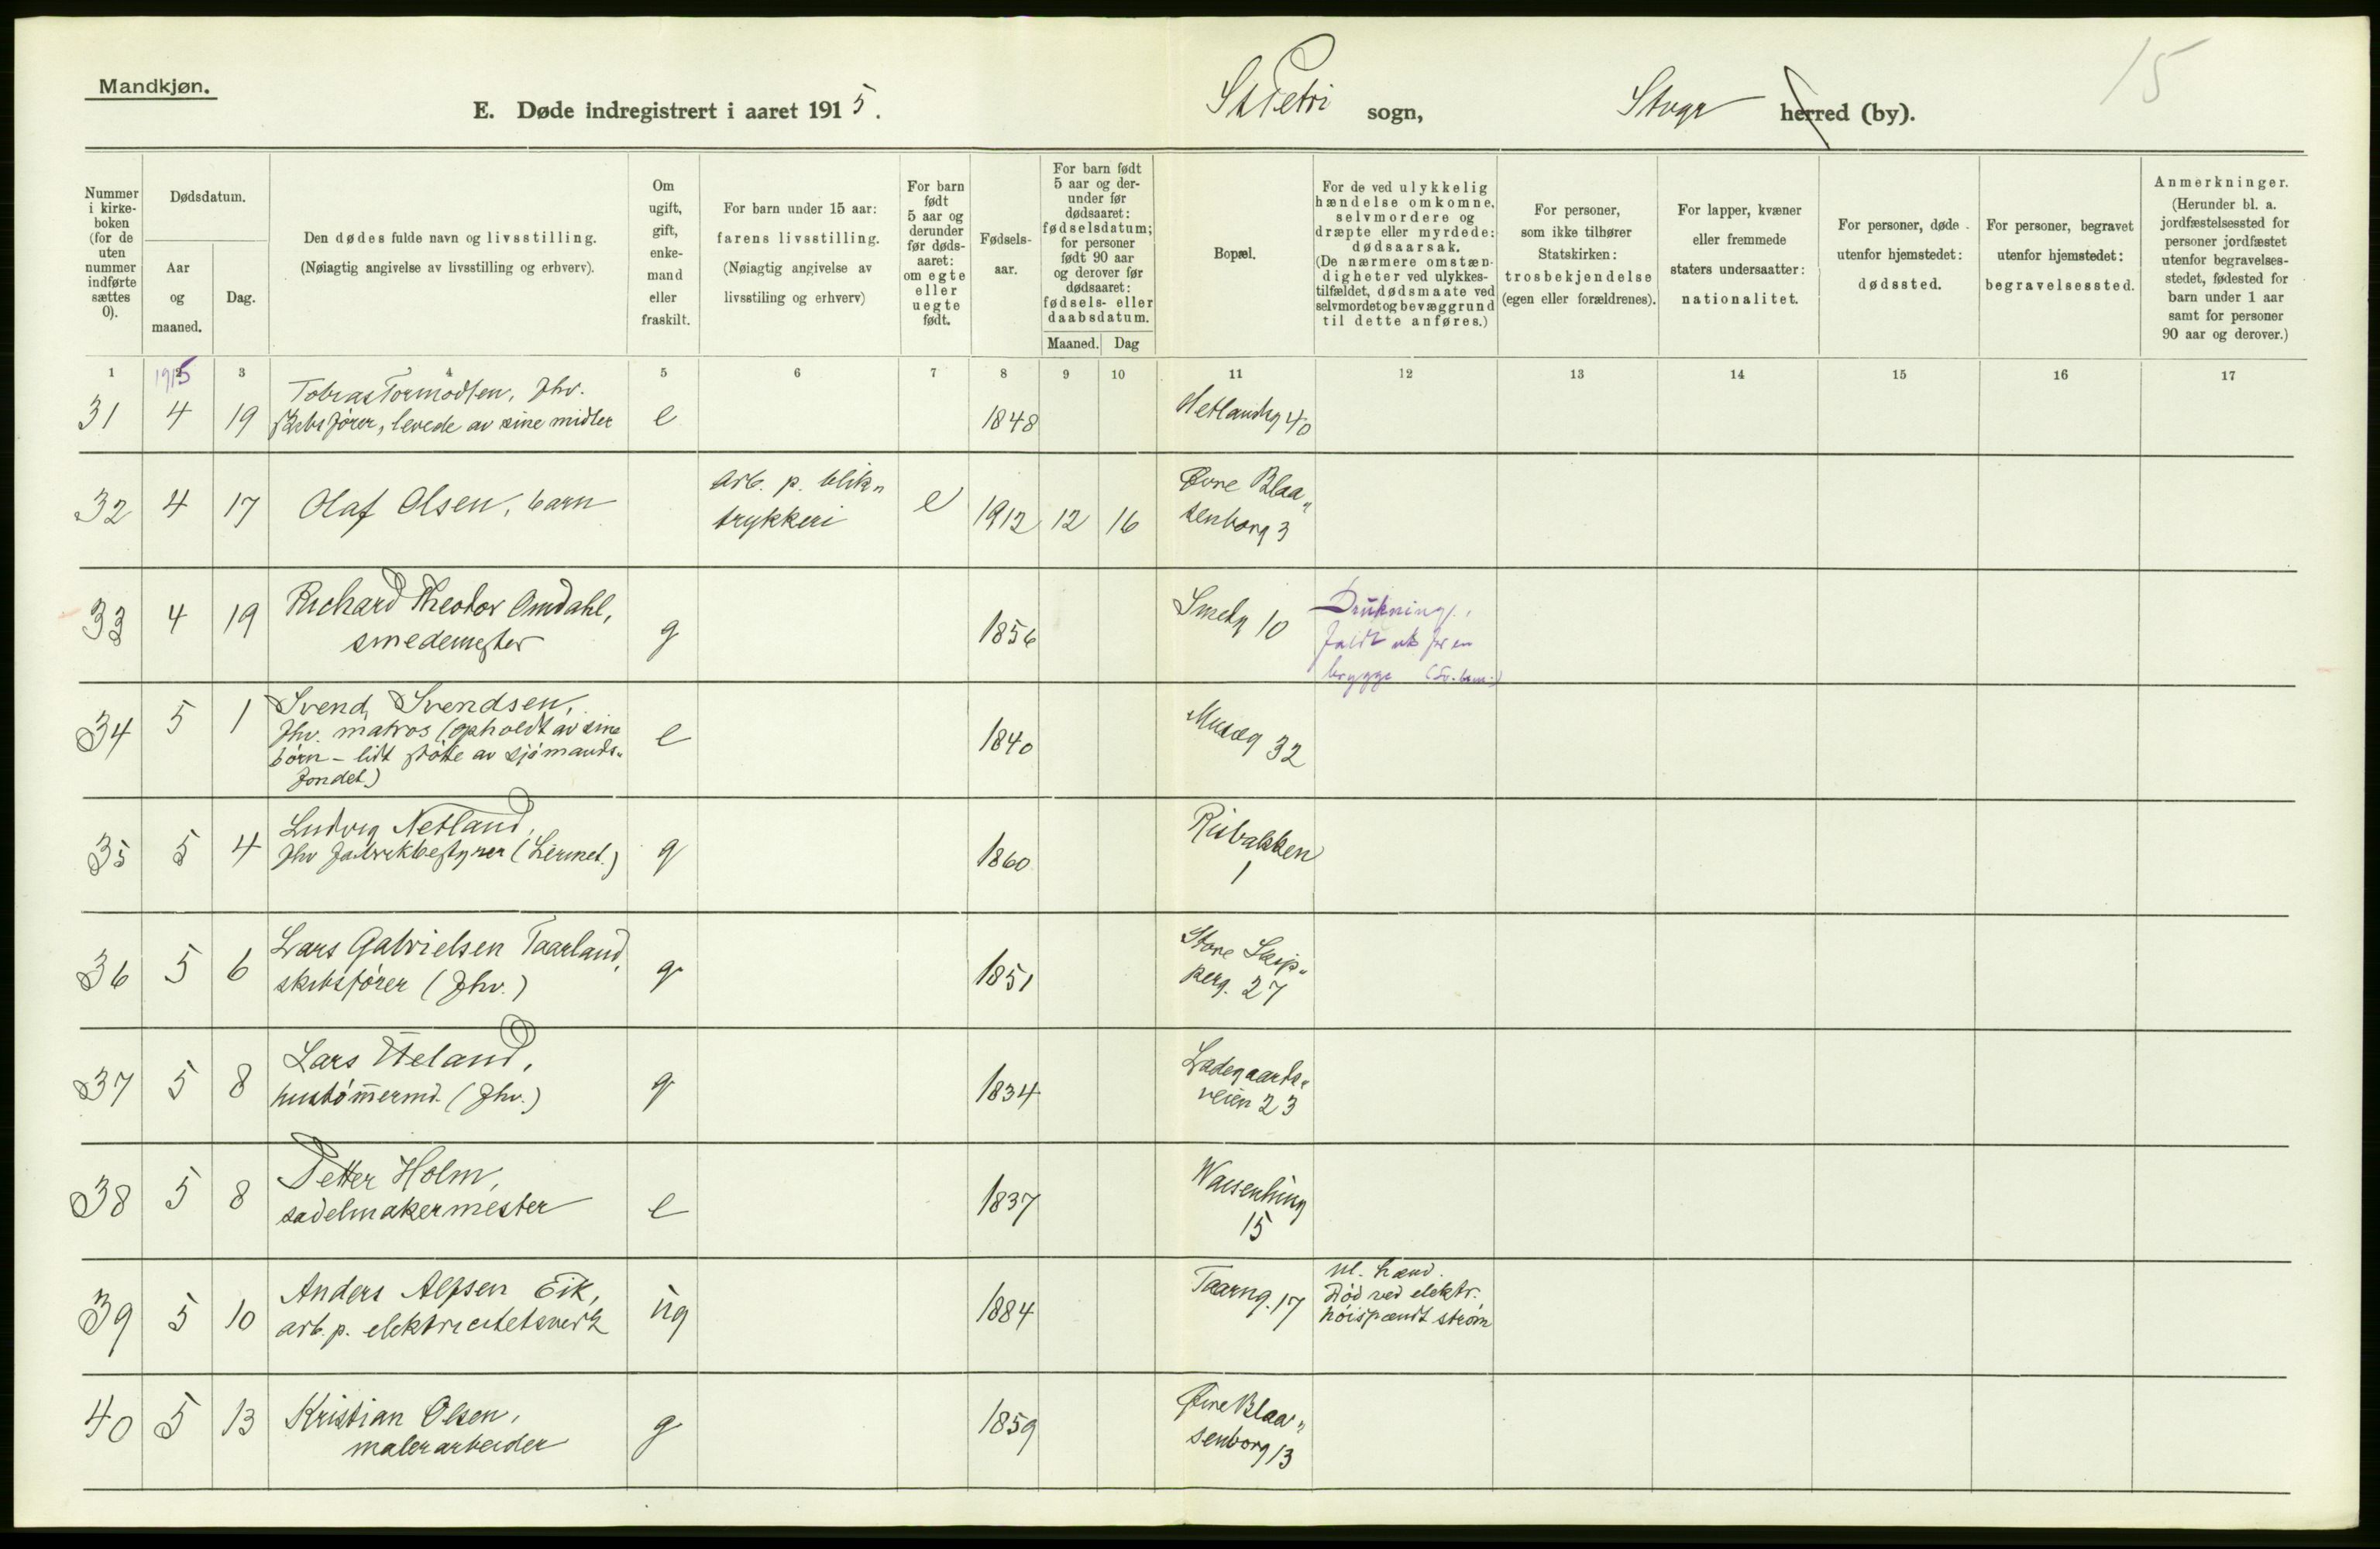 Mandkjøn.
E. Døde indregistrert i aaret 1915.
St Petri sogn,
Stvgr herred (by).
15
Nummer i kirke-boken (for de uten nummer indførte sættes 0).
Dødsdatum.
Aar og maaned.
Dag.
Den dødes fulde navn og livsstilling.
(Nøiagtig angivelse av livsstilling og erhverv).
Om ugift, gift, enke-mand eller fraskilt.
For barn under 15 aar: farens livsstilling.
(Nøiagtig angivelse av livsstiling og erhverv)
For barn født 5 aar og derunder før døds-aaret: om egte eller uegte født.
Fødsels-aar.
For barn født 5 aar og der-under før dødsaaret: fødselsdatum; for personer født 90 aar og derover før dødsaaret: fødsels- eller daabsdatum.
Maaned. Dag
Bopæl.
For de ved ulykkelig hændelse omkomne, selvmordere og dræpte eller myrdede: dødsaarsak.
(De nærmere omstæn-digheter ved ulykkes-tilfældet, dødsmaate ved selvmordet og bevæggrund til dette anføres.)
For personer, som ikke tilhører Statskirken: trosbekjendelse (egen eller forældrenes).
For lapper, kvæner eller fremmede staters undersaatter: nationalitet.
For personer, døde utenfor hjemstedet: dødssted.
For personer, begravet utenfor hjemstedet: begravelsessted.
Anmerkninger.
(Herunder bl. a. jordfæstelsessted for personer jordfæstet utenfor begravelses-stedet, fødested for barn under 1 aar samt for personer 90 aar og derover.)
1 2 3 4 5 6 7 8 9 10 11 12 13 14 15 16 17
1915
31 4 19 Tobias Tormodsen, fhv.
skibsfører, levede av sine midler e 1848 Hetlandsg 40
32 4 17 Olaf Olsen, barn arb. p. blik„
trykkeri e 1912 12 16 Øvre Blaa„
senborg 3
33 4 19 Richard Theodor Omdahl,
smedemester g 1856 Smedg 10 Drukning.,
faldt utfor en
brygge
34 5 1 Svend Svendsen,
fhv. matros (opholdt av sine
børn – lidt støtte av sjømands„
fondet) e 1840 Museg 32
35 5 4 Ludvig Netland,
fhv fabrikbestyrer (Hermet.) g 1860 Risbakken
1
36 5 6 Lars Gabrielsen Taarland,
skibsfører (fhv.) g 1851 Store Skip„
perg. 27
37 5 8 Lars Heland,
hustøm̄ermd. (fhv.) g 1834 Ladegaards„
veien 23
38 5 8 Petter Holm,
sadelmakermester e 1837 Waisenhusg
15
39 5 10 Anders Alfsen Eik,
arb. p. elektricitetsverk ug 1884 Taarng. 17 ul. hænd.
Død ved elektr.
høispændt strøm
40 5 13 Kristian Olsen,
malerarbeider g 1859 Øvre Blaa„
senborg 13